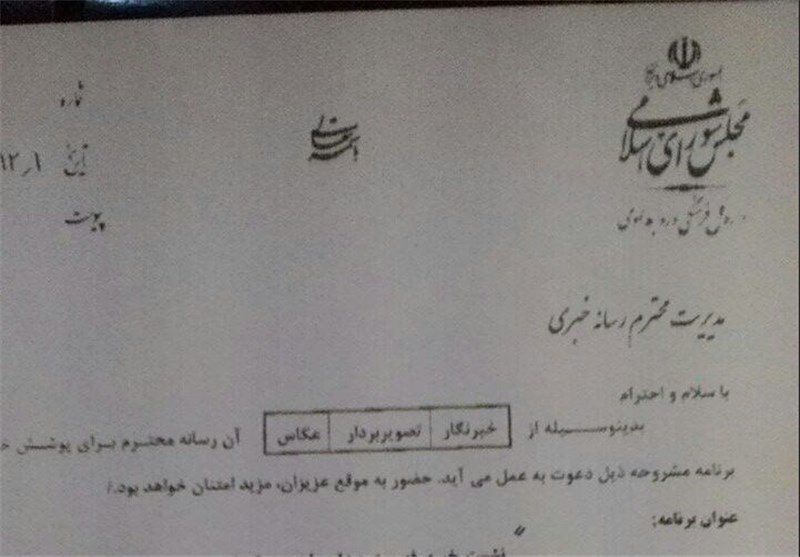 جمهوری اسلامی ایران
مجلس شورای اسلامی
باسمه تعالی
شماره
تاریخ
پیوست
مدیریت محترم رسانه خبری
با سلام و احترام
بدینوسیله از خبرنگار تصویربردار عکاس آن رسانه محترم برای پوشش
برنامه مشروحه ذیل دعوت به عمل می آید. حضور به موقع عزیزان، مزید امتنان خواهد بود./
عنوان برنامه: